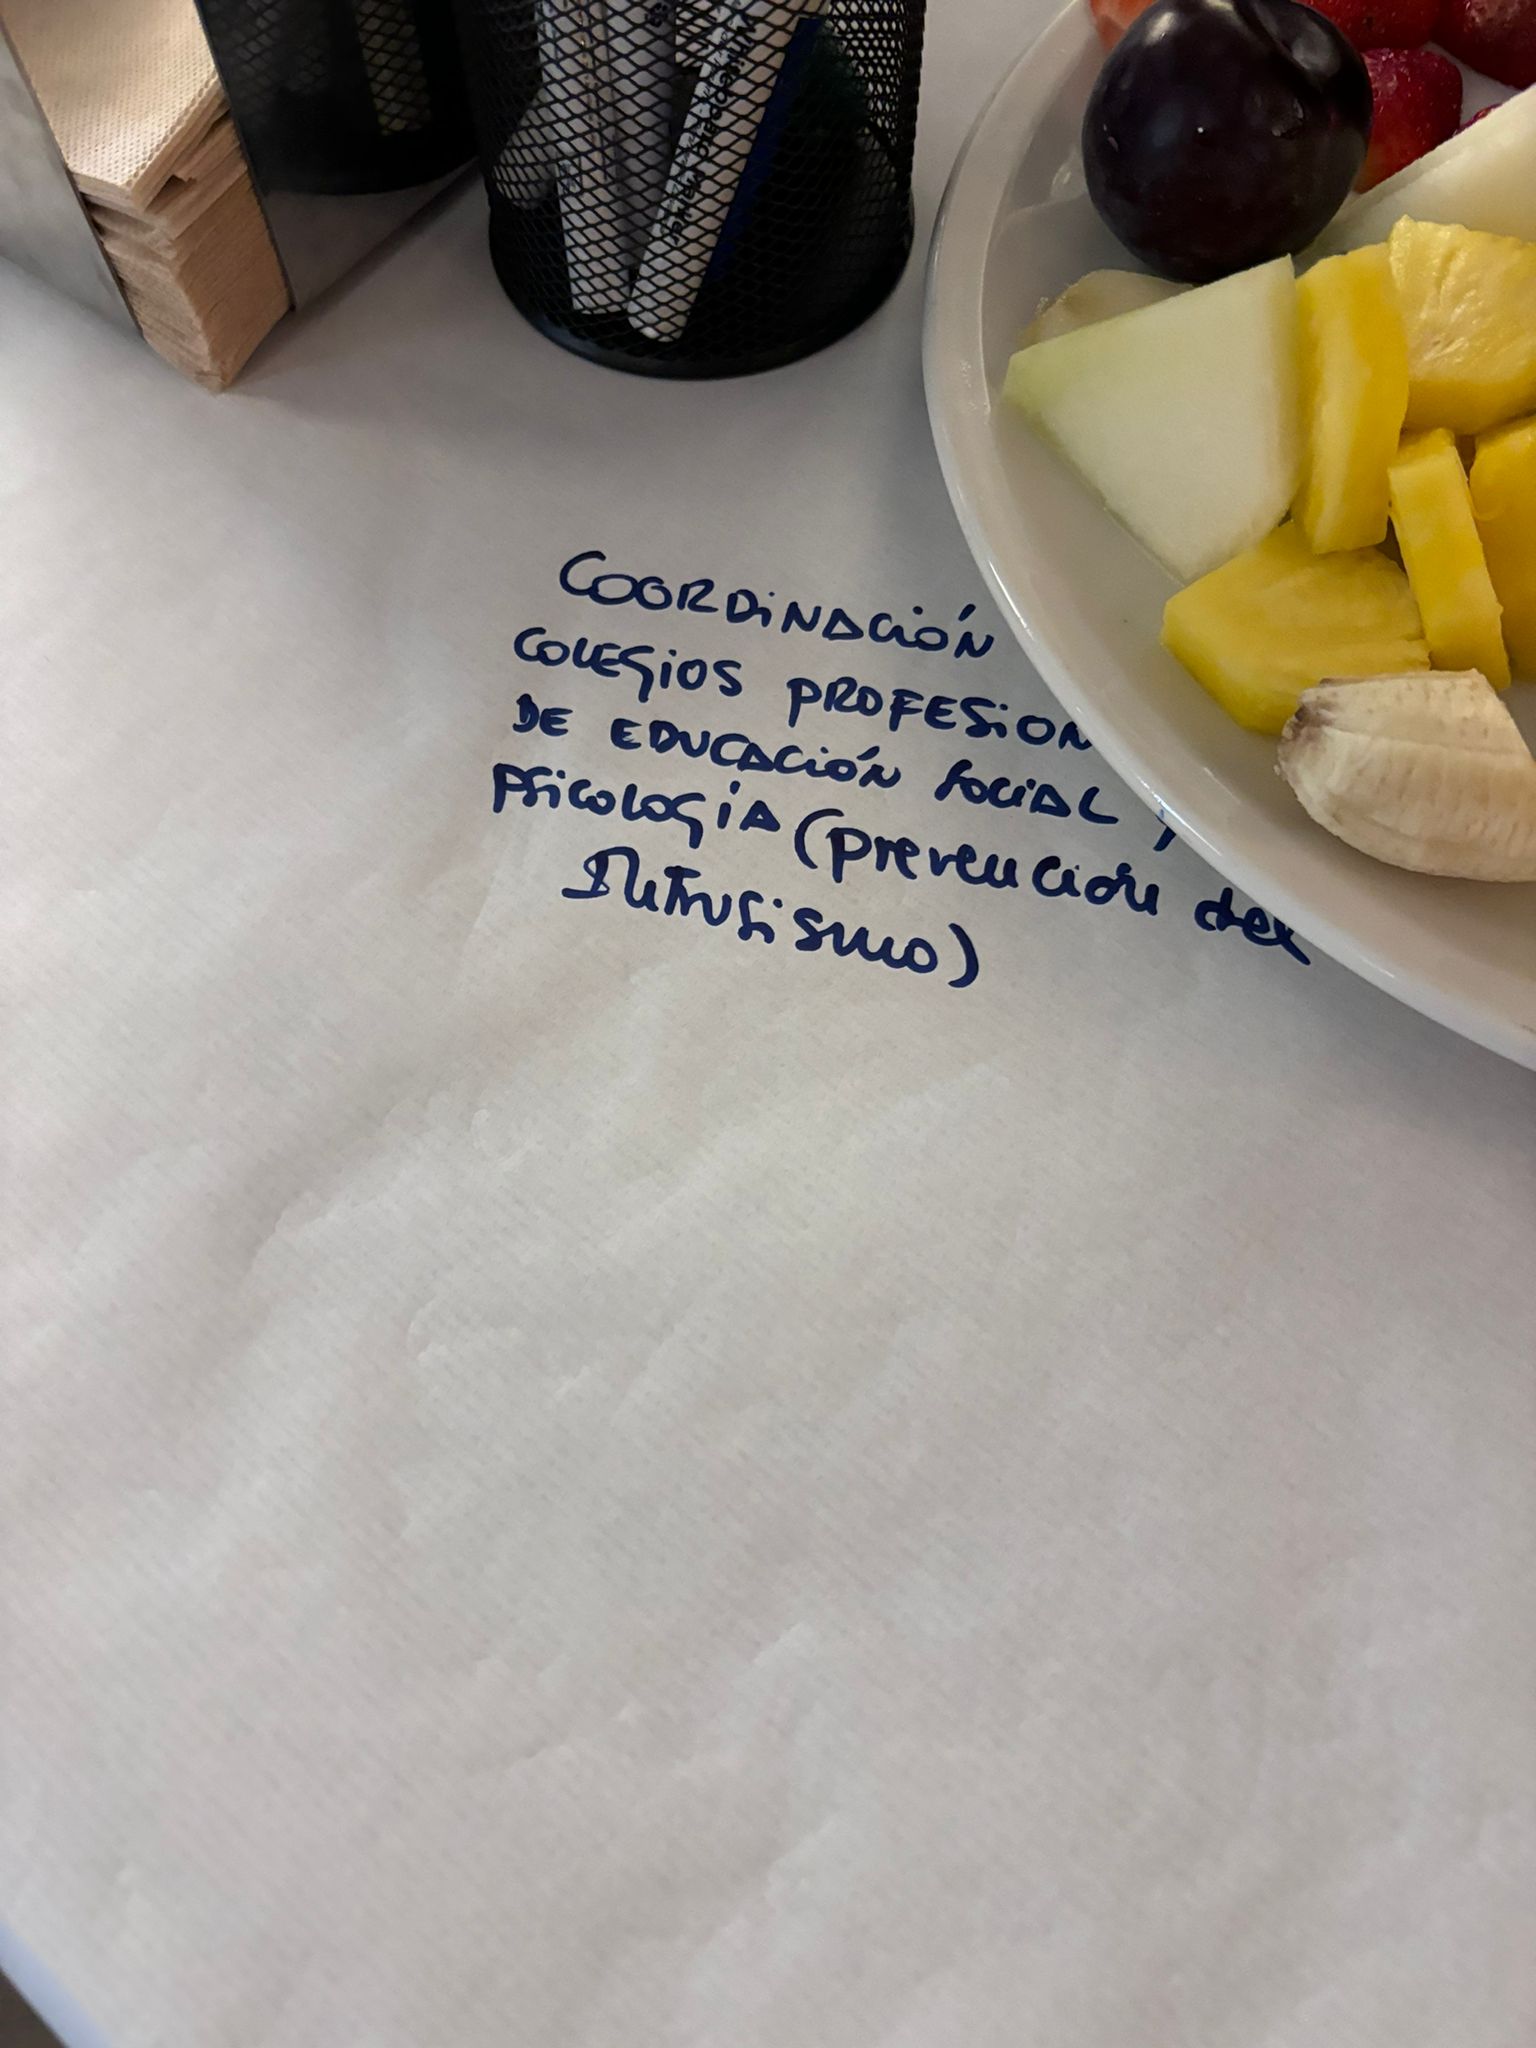 COORDINACIÓN
COLEGIOS PROFESION
DE EDUCACIÓN SOCIAL y
PSICOLOGÍA (prevención del
Intrusismo)